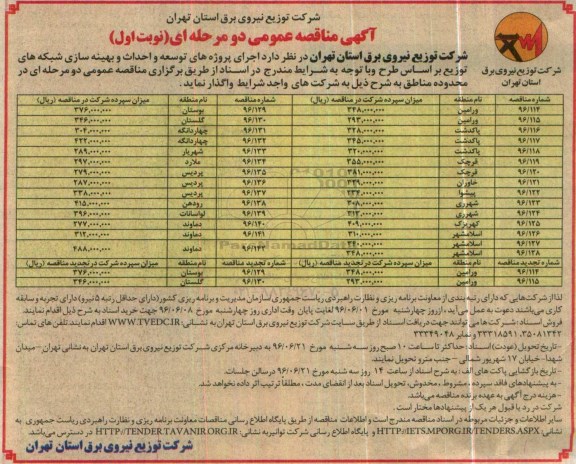 شرکت توزیع نیروی برق استان تهران
آگهی مناقصه عمومی دو مرحله ای (نوبت اول)
شرکت توزیع نیروی برق استان تهران در نظر دارد اجرای پروژه های توسعه و احداث و بهینه سازی شبکه های
توزیع بر اساس طرح وبا توجه به شرایط مندرج در اسناد از طریق برگزاری مناقصه عمومی دو مرحله ای در
محدوده مناطق به شرح ذیل به شرکت های واجد شرایط واگذار نماید.
شرکت توزیع نیروی برق
استان تهران
شماره مناقصه نام منطقه میزان سپرده شرکت در مناقصه (ریال) شماره مناقصه نام منطقه میزان سپرده شرکت در مناقصه (ریال)
۹۶/۱۱۴ ورامین ۳۴۸,۰۰۰,۰۰۰ ۹۶/۱۲۹ بوستان ۳۷۶,۰۰۰,۰۰۰
۹۶/۱۱۵ ورامین ۲۹۳,۰۰۰,۰۰۰ ۹۶/۱۳۰ گلستان ۳۴۶,۰۰۰,۰۰۰
۹۶/۱۱۶ پاکدشت ۳۲۸,۰۰۰,۰۰۰ ۹۶/۱۳۱ چهاردانگه ۳۰۴,۰۰۰,۰۰۰
۹۶/۱۱۷ پاکدشت ۳۴۵,۰۰۰,۰۰۰ ۹۶/۱۳۲ چهاردانگه ۴۲۲,۰۰۰,۰۰۰
۹۶/۱۱۸ پاکدشت ۳۲۰,۰۰۰,۰۰۰ ۹۶/۱۳۳ شهریار ۲۸۹,۰۰۰,۰۰۰
۹۶/۱۱۹ قرچک ۳۵۵,۰۰۰,۰۰۰ ۹۶/۱۳۴ ملارد ۲۹۷,۰۰۰,۰۰۰
۹۶/۱۲۰ قرچک ۳۸۱,۰۰۰,۰۰۰ ۹۶/۱۳۵ پردیس ۲۷۹,۰۰۰,۰۰۰
۹۶/۱۲۱ خاوران ۳۳۹,۰۰۰,۰۰۰ ۹۶/۱۳۶ پردیس ۲۸۷,۰۰۰,۰۰۰
۹۶/۱۲۲ پیشوا ۳۳۴,۰۰۰,۰۰۰ ۹۶/۱۳۷ پردیس ۳۳۸,۰۰۰,۰۰۰
۹۶/۱۲۳ شهرری ۳۰۸,۰۰۰,۰۰۰ ۹۶/۱۳۸ رودهن ۴۱۵,۰۰۰,۰۰۰
۹۶/۱۲۴ شهرری ۳۱۲,۰۰۰,۰۰۰ ۹۶/۱۳۹ لواسانات ۳۹۶,۰۰۰,۰۰۰
۹۶/۱۲۵ کهریزک ۴۰۹,۰۰۰,۰۰۰ ۹۶/۱۴۰ دماوند ۲۷۷,۰۰۰,۰۰۰
۹۶/۱۲۶ اسلامشهر ۳۱۰,۰۰۰,۰۰۰ ۹۶/۱۴۱ دماوند ۳۱۲,۰۰۰,۰۰۰
۹۶/۱۲۷ اسلامشهر ۳۴۰,۰۰۰,۰۰۰ دماوند ۴۸۸,۰۰۰,۰۰۰
۹۶/۱۲۸ اسلامشهر ۳۴۸,۰۰۰,۰۰۰
شماره تجدید مناقصه نام منطقه میزان سپرده شرکت در تجدید مناقصه (ریال) شماره تجدید مناقصه نام منطقه میزان سپرده شرکت در تجدید مناقصه (ریال)
۹۶/۱۱۴ ورامین ۳۴۸,۰۰۰,۰۰۰ ۹۶/۱۲۹ بوستان ۳۷۶,۰۰۰,۰۰۰
۹۶/۱۱۵ ورامین ۲۹۳,۰۰۰,۰۰۰ ۹۶/۱۳۰ گلستان ۳۴۶,۰۰۰,۰۰۰
لذا از شرکت هایی که دارای رتبه بندی از معاونت برنامه ریزی و نظارت راهبردی ریاست جمهوری (سازمان مدیریت و برنامه ریزی کشور (دارای حداقل رتبه ۵ نیرو) دارای تجربه و سابقه
کاری می باشند دعوت به عمل می آید، از روز چهارشنبه مورخ ۹۶/۰۶/۰۱ لغایت پایان وقت اداری روز چهارشنبه مورخ ۹۶/۰۶/۰۸ جهت خرید اسناد به شرح ذیل اقدام نمایند.
فروش اسناد: شرکت ها می توانند جهت دریافت اسناد از طریق سایت شرکت توزیع نیروی برق استان تهران به نشانی: WWW.TVEDC.IR اقدام نمایند تلفن های تماس:
۳۵۰۸۱۳۴۲، ۳۳۳۱۸۵۹۱ و نمابر ۳۳۳۴۹۰۴۸
- تاریخ تحویل (عودت) اسناد: حداکثر تا ساعت ۱۰ صبح روز سه شنبه مورخ ۹۶/۰۶/۲۱ به دبیرخانه مرکزی شرکت توزیع نیروی برق استان تهران به نشانی تهران - میدان
شهدا - خیابان ۱۷ شهریور شمالی - جنب مترو تحویل نمایند.
- تاریخ بازگشایی پاکت های الف: به شرح اسناد از ساعت ۱۴ روز سه شنبه مورخ ۹۶/۰۶/۲۱ درسالن جلسات.
- به پیشنهادهای فاقد سپرده، مشروط، مخدوش، تحویل اسناد بعد از انقضای مدت، مطلقاً ترتیب اثر داده نخواهد شد.
- هزینه درج آگهی به عهده برنده مناقصه می باشد.
شرکت در رد یا قبول هر یک از پیشنهادها مختار است.
سایر اطلاعات و جزئیات مربوطه در اسناد مناقصه مندرج است و اطلاعات مناقصه از طریق پایگاه اطلاع رسانی مناقصات معاونت برنامه ریزی و نظارت راهبردی ریاست جمهوری به
نشانی: HTTP://IETS.MPORG.IR/TENDERS.ASPX و پایگاه اطلاع رسانی شرکت توانیر به نشانی: HTTP://TENDER.TAVANIR.ORG.IR در دسترس می باشد.
شرکت توزیع نیروی برق استان تهران